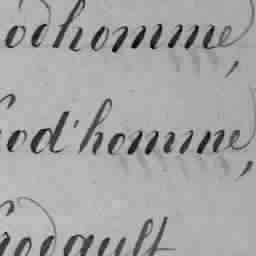 odhomme,
od'homme,
odault